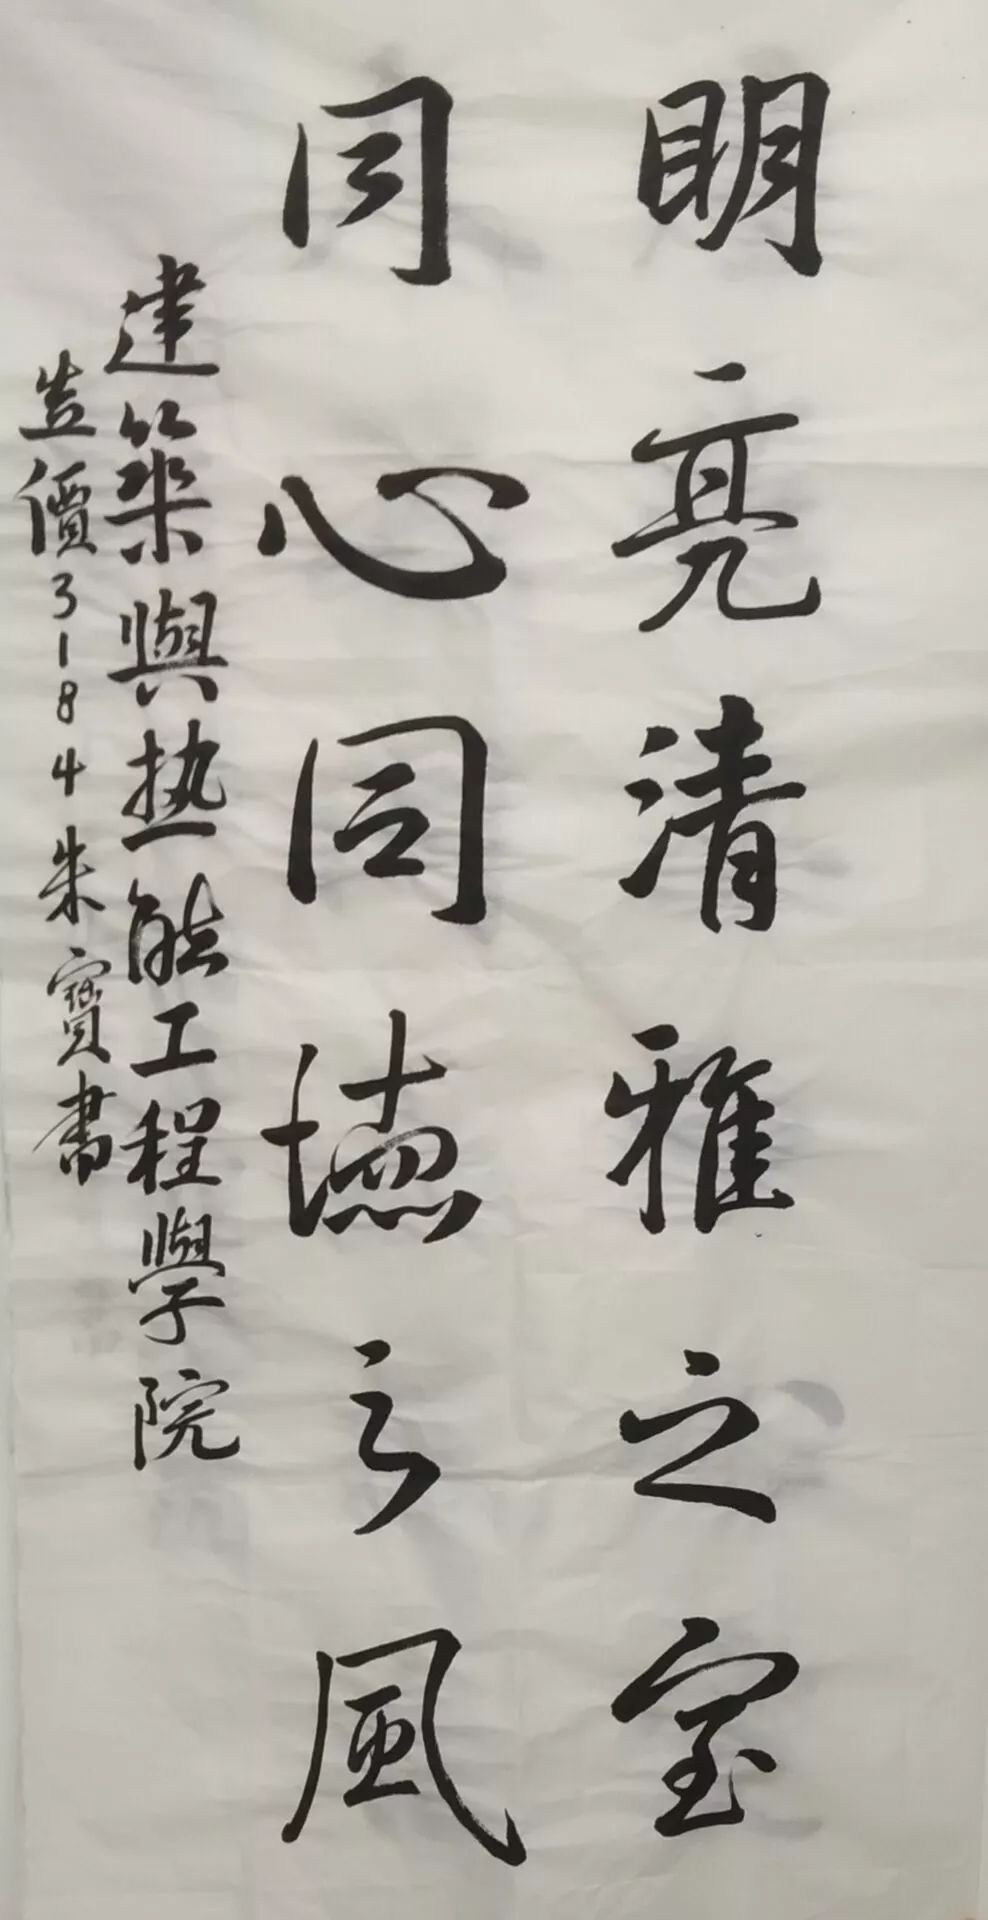 明亮清雅之室
同心同德之风
建築與热能工程學院
造價3184朱寶書